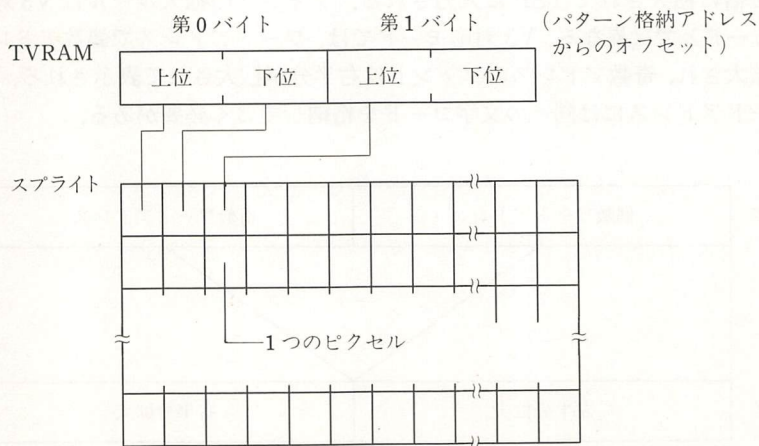 第0バイト 第1バイト (パターン格納アドレス
からのオフセット)
TVRAM
上位 下位 上位 下位
スプライト
1つのピクセル